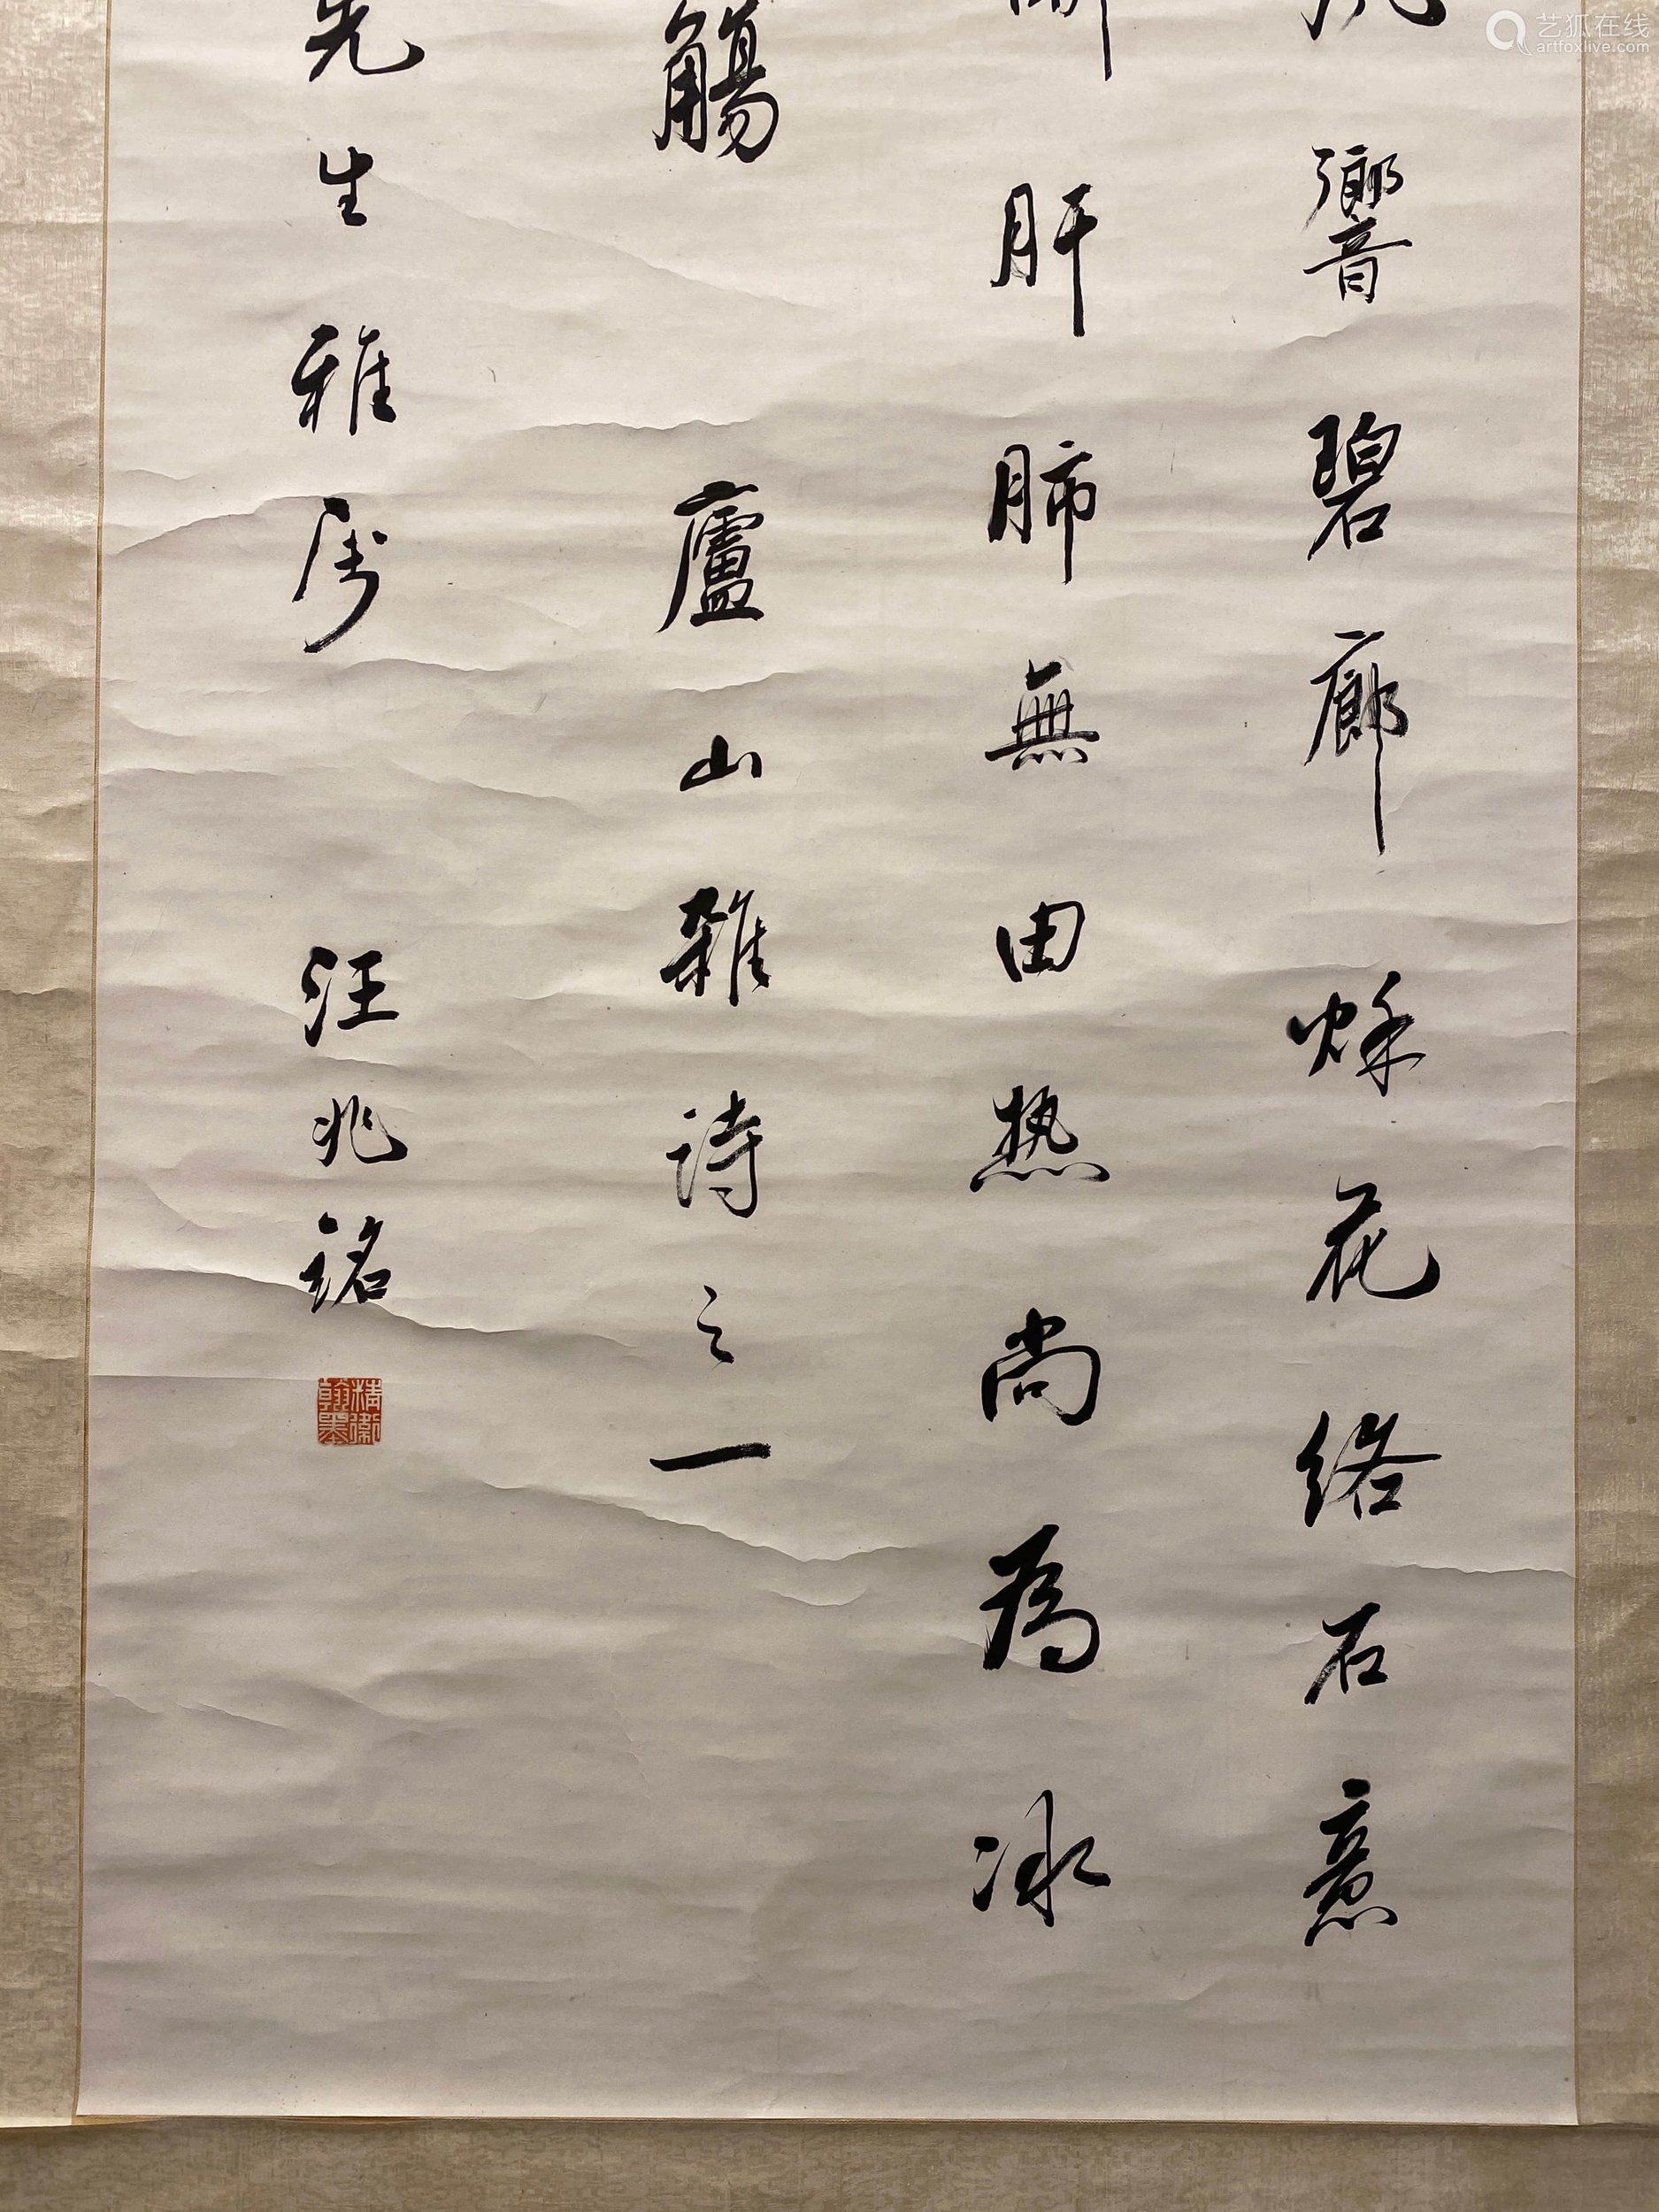 響碧廊秌花絡石意
肝肺無由热尚為冰
觴 廬山雜詩之一
先生雅属 汪兆銘
精衞翰墨
艺狐在线
artfoxlive.com